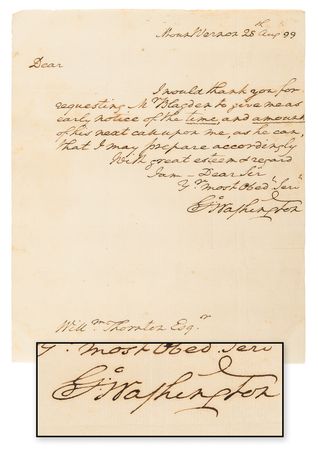 Mount Vernon 28th Aug 99
Dear
I would thank you for
requesting Mr Blagden to give me as
early notice of the time, and amount
of his next call upon me, as he can,
that I may prepare accordingly
With great esteem & regard
I am – Dear Sir
Yr most Obed Serv
Go Washington
Willm Thornton Esqr
Yr most Obed Serv
Go Washington